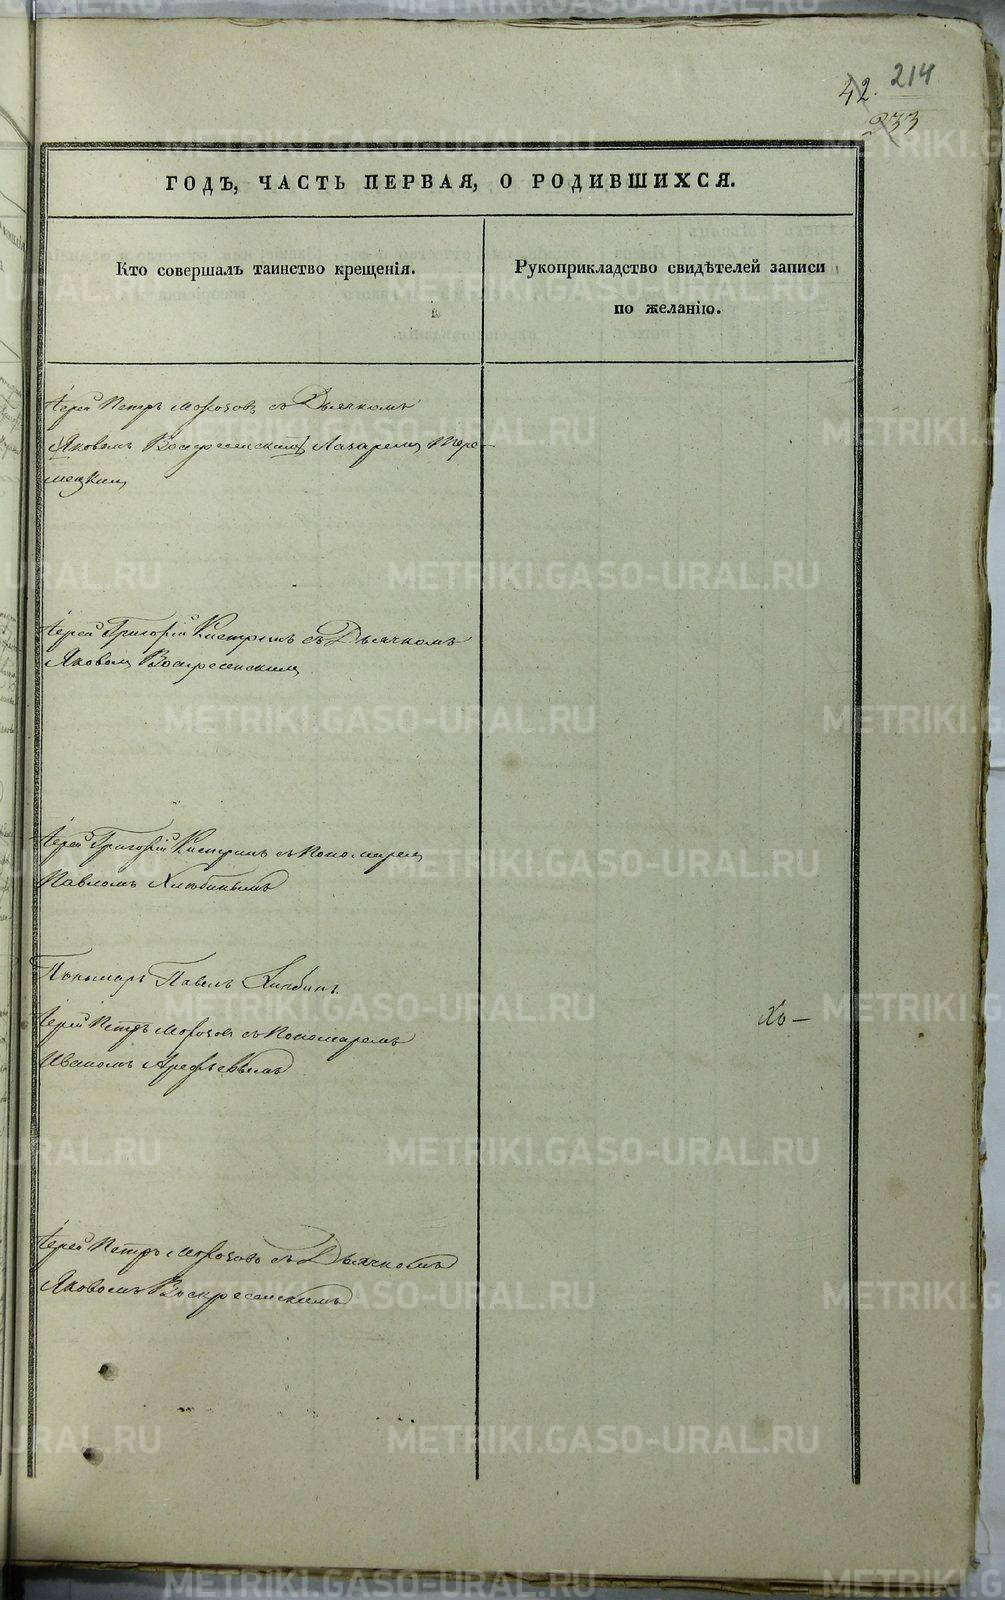 42. 214
233
ГОДЪ, ЧАСТЬ ПЕРВАЯ, О РОДИВШИХСЯ.
Кто совершалъ таинство крещенія.
Рукоприкладство свидѣтелей записи
по желанію.
Іерей Петръ Морозовъ съ Дьячкомъ
Яковомъ Воскресенскимъ
Іерей Григорій съ Дьячкомъ
Яковомъ Воскресенскимъ
Іерей Григорій съ Пономаремъ
Павломъ Хлѣбинымъ
Пономарь Павелъ Хлѣбинъ.
Іерей Петръ Морозовъ съ Пономаремъ
Иваномъ Арефьевымъ
Іерей Петръ Морозовъ съ Дьячкомъ
Яковомъ Воскресенскимъ
METRIKI.GASO-URAL.RU